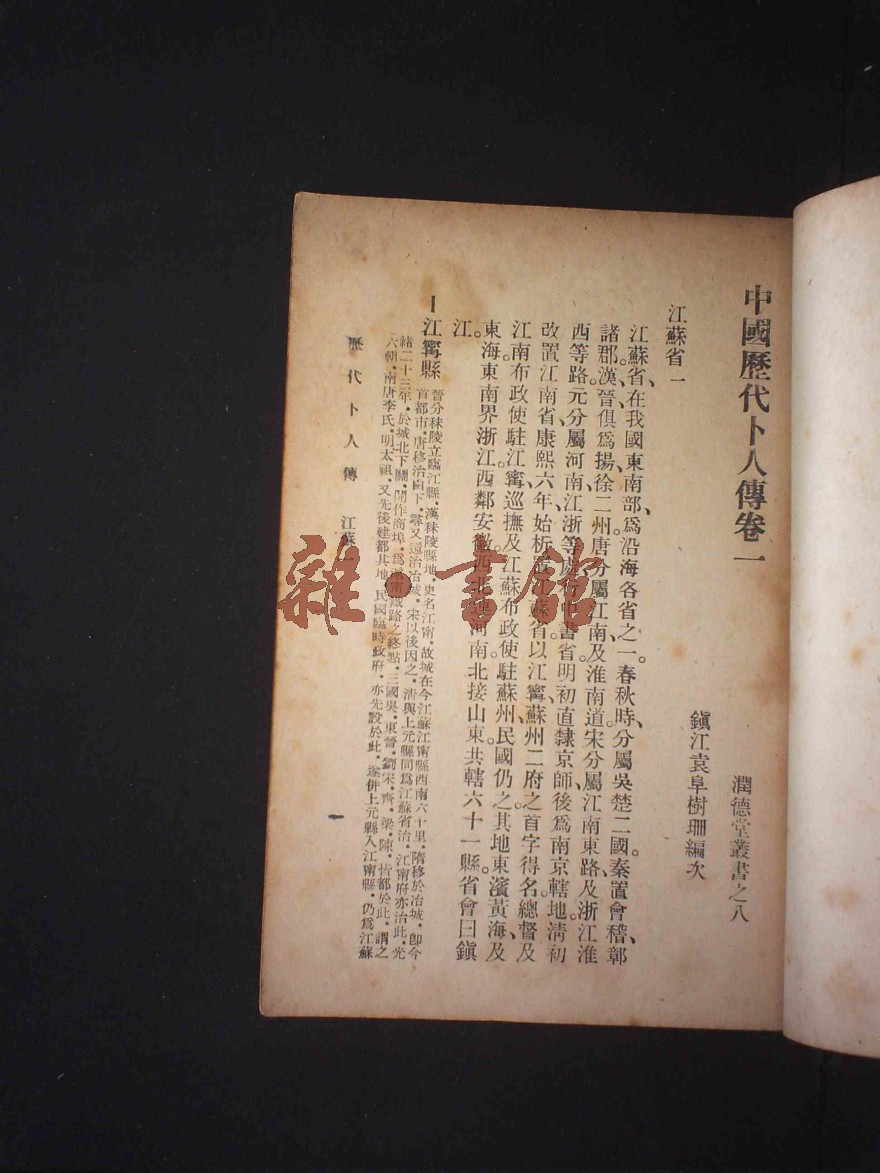 中國歷代卜人傳卷一
潤德堂叢書之八
鎭江袁阜樹珊編次
江蘇省一
江蘇省、在我國東南部、爲沿海各省之一。春秋時、分屬吳楚二國。秦置會稽、鄣
諸郡。漢、晉俱爲揚徐二州。唐分屬江南、及淮南道。宋分屬江南東路、及浙江淮
西等路。元分屬河南、江浙等處行中書省。明初直隸京師、後爲南京轄地。淸初
改置江南省、康熙六年、始析置江蘇省、以江寗、蘇州二府之首字得名。總督及
江南布政使駐江寗、巡撫及江蘇布政使駐蘇州、民國仍之。其地東濱黃海、及
東海、東南界浙江、西鄰安徽、西北連河南、北接山東、共轄六十一縣、省會曰鎭
江。
1 江寗縣 晉分秣陵立臨江縣，漢秣陵縣地，更名江甯，故城在今江蘇江甯縣西南六十里，隋移於冶城，卽今
首都市，唐移治白下，尋又還治冶城，宋以後因之，淸與上元縣同爲江蘇省治，江甯府亦治此，光
緒二十三年，於城北下關，開作商埠，爲滬甯鐵路之終點，三國吳，東晉，劉宋，齊，梁，陳，皆都於此，謂之
六朝，南唐李氏，明太祖，又先後建都其地，民國臨時政府，亦先設於此，遂併上元縣入江甯縣，仍爲江蘇
歷代卜人傳 江蘇一
一
雜書館